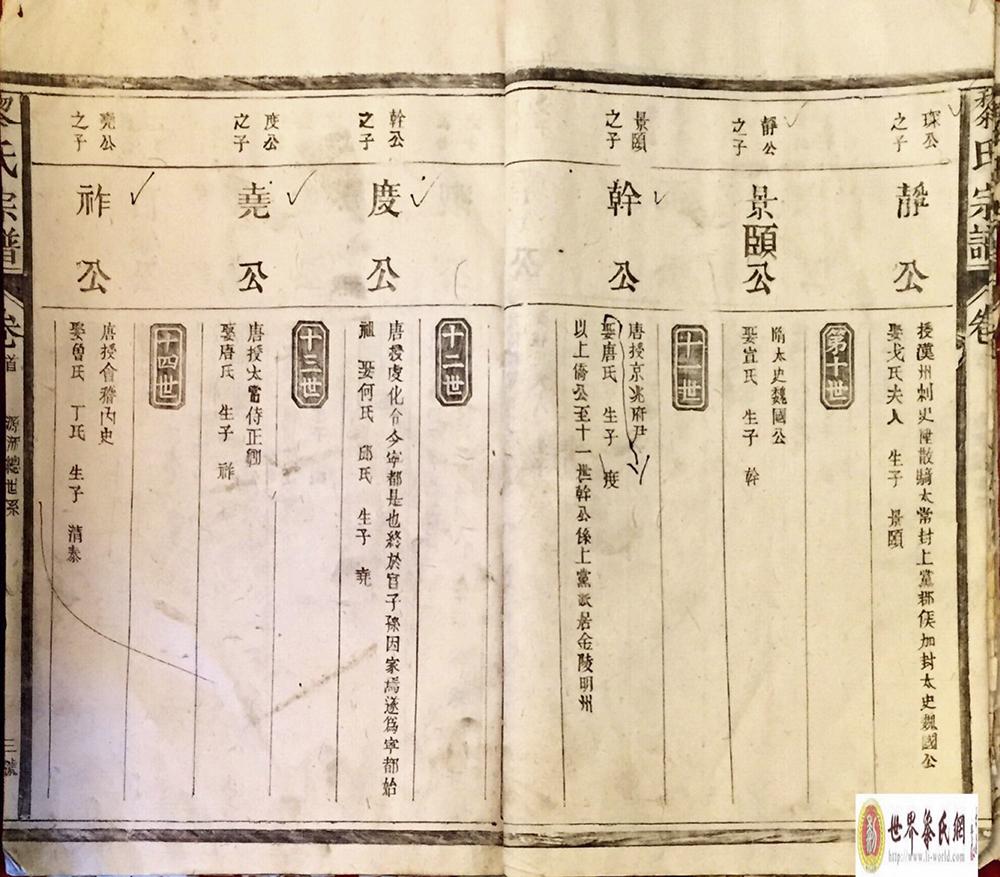 黎氏宗譜
卷
琛公
之子
靜公
授漢州刺史陞散騎太常封上黨郡侯加封太史魏國公
娶戈氏夫人 生子 景頤
第十世
靜公
之子
景頤公
隋太史魏國公
娶宣氏 生子 幹
十一世
景頤
之子
幹公
唐授京兆府尹
娶唐氏 生子 度
以上僑公至十一世幹公係上黨 居金陵明州
十二世
幹公
之子
度公
唐授虔化令今寧都是也終於官子孫因家焉遂爲寧都始
祖 娶何氏 邱氏 生子 堯
十三世
度公
之子
堯公
唐授太常侍正卿
娶唐氏 生子 祚
十四世
堯公
之子
祚公
唐授會稽內史
娶魯氏 丁氏 生子 清泰
黎氏宗譜
卷首
總世系
三號
世界黎氏網
http://www.li-world.com